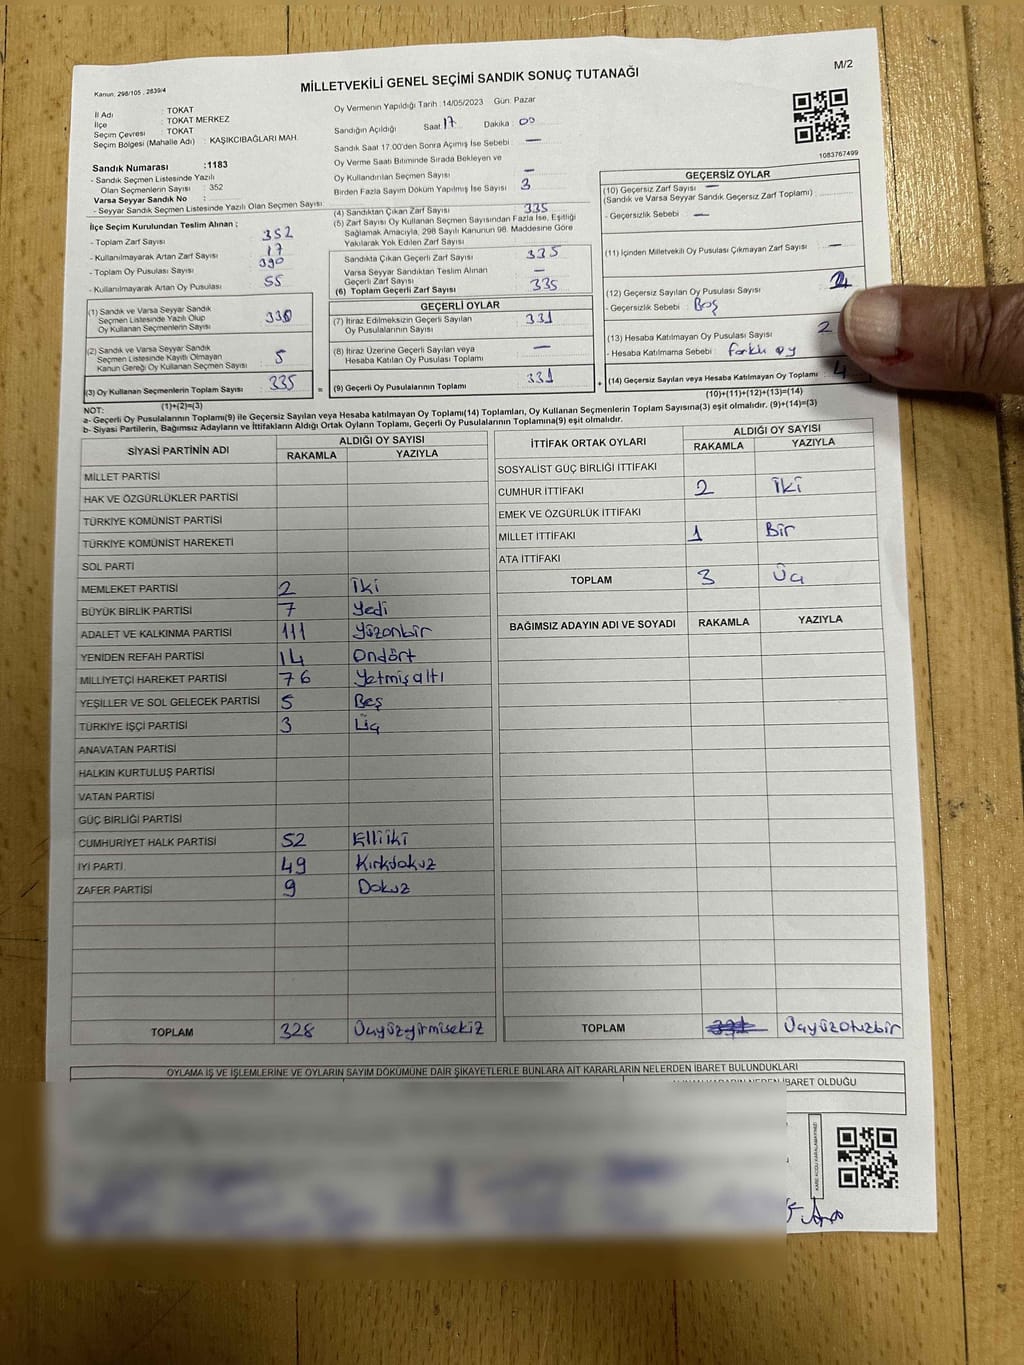 MİLLETVEKİLİ GENEL SEÇİMİ SANDIK SONUÇ TUTANAĞI
M/2
Kanun: 298/105 , 2839/4
İl Adı : TOKAT
İlçe : TOKAT MERKEZ
Seçim Çevresi : TOKAT
Seçim Bölgesi (Mahalle Adı) : KAŞIKCIBAĞLARI MAH.
Sandık Numarası :1183
- Sandık Seçmen Listesinde Yazılı
Olan Seçmenlerin Sayısı : 352
Varsa Seyyar Sandık No :
- Seyyar Sandık Seçmen Listesinde Yazılı Olan Seçmen Sayısı
Oy Vermenin Yapıldığı Tarih :14/05/2023 Gün: Pazar
Sandığın Açıldığı Saat: 17 Dakika : 00
Sandık Saat 17:00'den Sonra Açımış İse Sebebi : —
Oy Verme Saati Bitiminde Sırada Bekleyen ve
Oy Kullandırılan Seçmen Sayısı : —
Birden Fazla Sayım Döküm Yapılmış İse Sayısı : 3
1083767499
İlçe Seçim Kurulundan Teslim Alınan ;
- Toplam Zarf Sayısı : 352
- Kullanılmayarak Artan Zarf Sayısı : 17
- Toplam Oy Pusulası Sayısı : 390
- Kullanılmayarak Artan Oy Pusulası : 55
(1) Sandık ve Varsa Seyyar Sandık
Seçmen Listesinde Yazılı Olup
Oy Kullanan Seçmenlerin Sayısı : 330
(2) Sandık ve Varsa Seyyar Sandık
Seçmen Listesinde Kayıtlı Olmayan
Kanun Gereği Oy Kullanan Seçmen Sayısı : 5
(3) Oy Kullanan Seçmenlerin Toplam Sayısı : 335
(1)+(2)=(3)
(4) Sandıktan Çıkan Zarf Sayısı : 335
(5) Zarf Sayısı Oy Kullanan Seçmen Sayısından Fazla İse, Eşitliği
Sağlamak Amacıyla, 298 Sayılı Kanunun 98. Maddesine Göre
Yakılarak Yok Edilen Zarf Sayısı :
Sandıkta Çıkan Geçerli Zarf Sayısı : 335
Varsa Seyyar Sandıktan Teslim Alınan
Geçerli Zarf Sayısı : —
(6) Toplam Geçerli Zarf Sayısı : 335
GEÇERLİ OYLAR
(7) İtiraz Edilmeksizin Geçerli Sayılan
Oy Pusulalarının Sayısı : 331
(8) İtiraz Üzerine Geçerli Sayılan veya
Hesaba Katılan Oy Pusulası Toplamı : —
= (9) Geçerli Oy Pusulalarının Toplamı : 331
GEÇERSİZ OYLAR
(10) Geçersiz Zarf Sayısı : —
(Sandık ve Varsa Seyyar Sandık Geçersiz Zarf Toplamı)
- Geçersizlik Sebebi : —
(11) İçinden Milletvekili Oy Pusulası Çıkmayan Zarf Sayısı : —
(12) Geçersiz Sayılan Oy Pusulası Sayısı :
- Geçersizlik Sebebi : Boş
(13) Hesaba Katılmayan Oy Pusulası Sayısı : 2
- Hesaba Katılmama Sebebi : farklı oy
+ (14) Geçersiz Sayılan veya Hesaba Katılmayan Oy Toplamı : 4
(10)+(11)+(12)+(13)=(14)
NOT:
a- Geçerli Oy Pusulalarının Toplamı(9) ile Geçersiz Sayılan veya Hesaba katılmayan Oy Toplamı(14) Toplamları, Oy Kullanan Seçmenlerin Toplam Sayısına(3) eşit olmalıdır. (9)+(14)=(3)
b- Siyasi Partilerin, Bağımsız Adayların ve İttifakların Aldığı Ortak Oyların Toplamı, Geçerli Oy Pusulalarının Toplamına(9) eşit olmalıdır.
SİYASİ PARTİNİN ADI ALDIĞI OY SAYISI
RAKAMLA YAZIYLA
MİLLET PARTİSİ
HAK VE ÖZGÜRLÜKLER PARTİSİ
TÜRKİYE KOMÜNİST PARTİSİ
TÜRKİYE KOMÜNİST HAREKETİ
SOL PARTİ
MEMLEKET PARTİSİ 2 İki
BÜYÜK BİRLİK PARTİSİ 7 Yedi
ADALET VE KALKINMA PARTİSİ 111 Yüzonbir
YENİDEN REFAH PARTİSİ 14 Ondört
MİLLİYETÇİ HAREKET PARTİSİ 76 Yetmişaltı
YEŞİLLER VE SOL GELECEK PARTİSİ 5 Beş
TÜRKİYE İŞÇİ PARTİSİ 3 Üç
ANAVATAN PARTİSİ
HALKIN KURTULUŞ PARTİSİ
VATAN PARTİSİ
GÜÇ BİRLİĞİ PARTİSİ
CUMHURİYET HALK PARTİSİ 52 Elliiki
İYİ PARTİ 49 Kırkdokuz
ZAFER PARTİSİ 9 Dokuz
TOPLAM 328 Üçyüzyirmisekiz
İTTİFAK ORTAK OYLARI ALDIĞI OY SAYISI
RAKAMLA YAZIYLA
SOSYALİST GÜÇ BİRLİĞİ İTTİFAKI
CUMHUR İTTİFAKI 2 İki
EMEK VE ÖZGÜRLÜK İTTİFAKI
MİLLET İTTİFAKI 1 Bir
ATA İTTİFAKI
TOPLAM 3 Üç
BAĞIMSIZ ADAYIN ADI VE SOYADI RAKAMLA YAZIYLA
TOPLAM Üçyüzotuzbir
OYLAMA İŞ VE İŞLEMLERİNE VE OYLARIN SAYIM DÖKÜMÜNE DAİR ŞİKAYETLERLE BUNLARA AİT KARARLARIN NELERDEN İBARET BULUNDUKLARI
İBARET OLDUĞU
KARE KODU KARALAMAYINIZ!